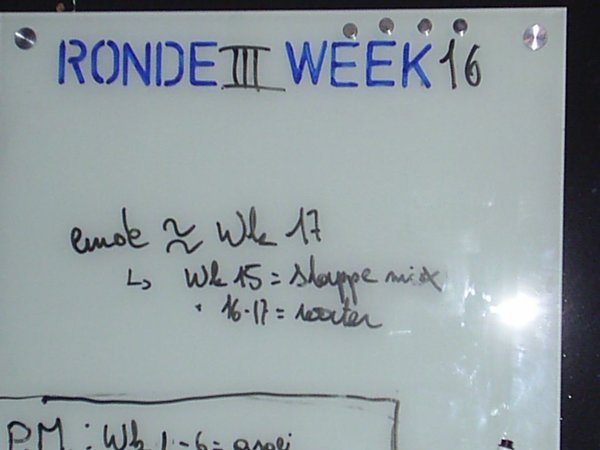 RONDE III WEEK 16
einde ≈ Wk 17
↳ Wk 15 = slappe mix
" 16-17 =
P.M. : Wk 1-6 =